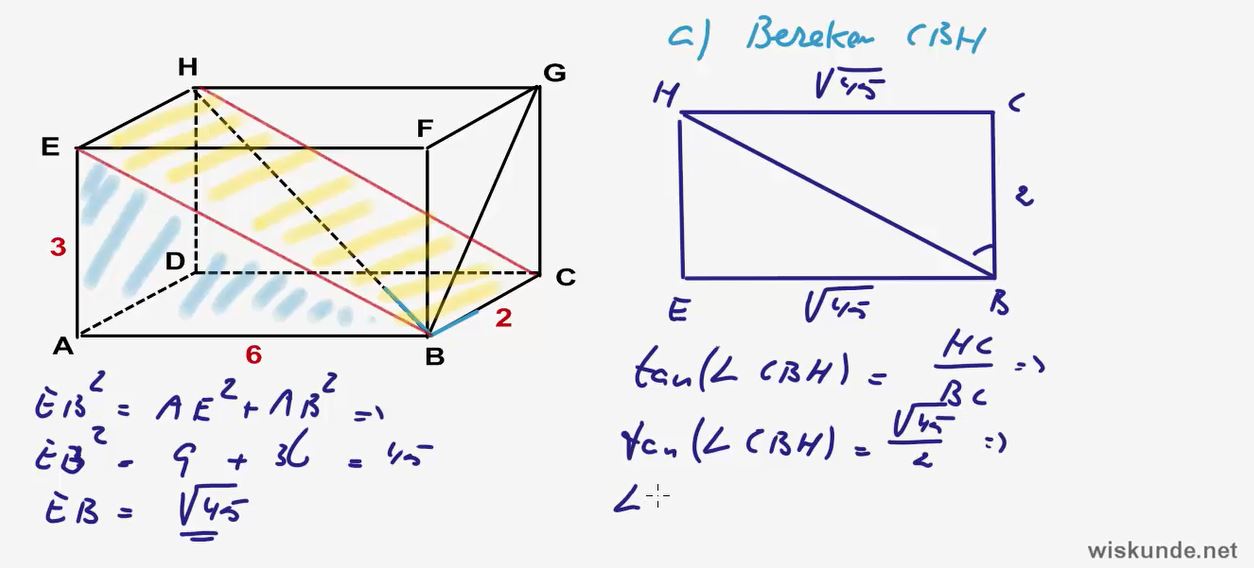 H
G
E
F
3
D
C
2
A
6
B
EB² = AE² + AB² =>
EB² = 9 + 36 = 45
EB = √45
a) Bereken CBH
√45
H
C
2
E
√45
B
tan(∠ CBH) = HC/BC =>
tan(∠ CBH) = √45/2 =>
∠
wiskunde.net